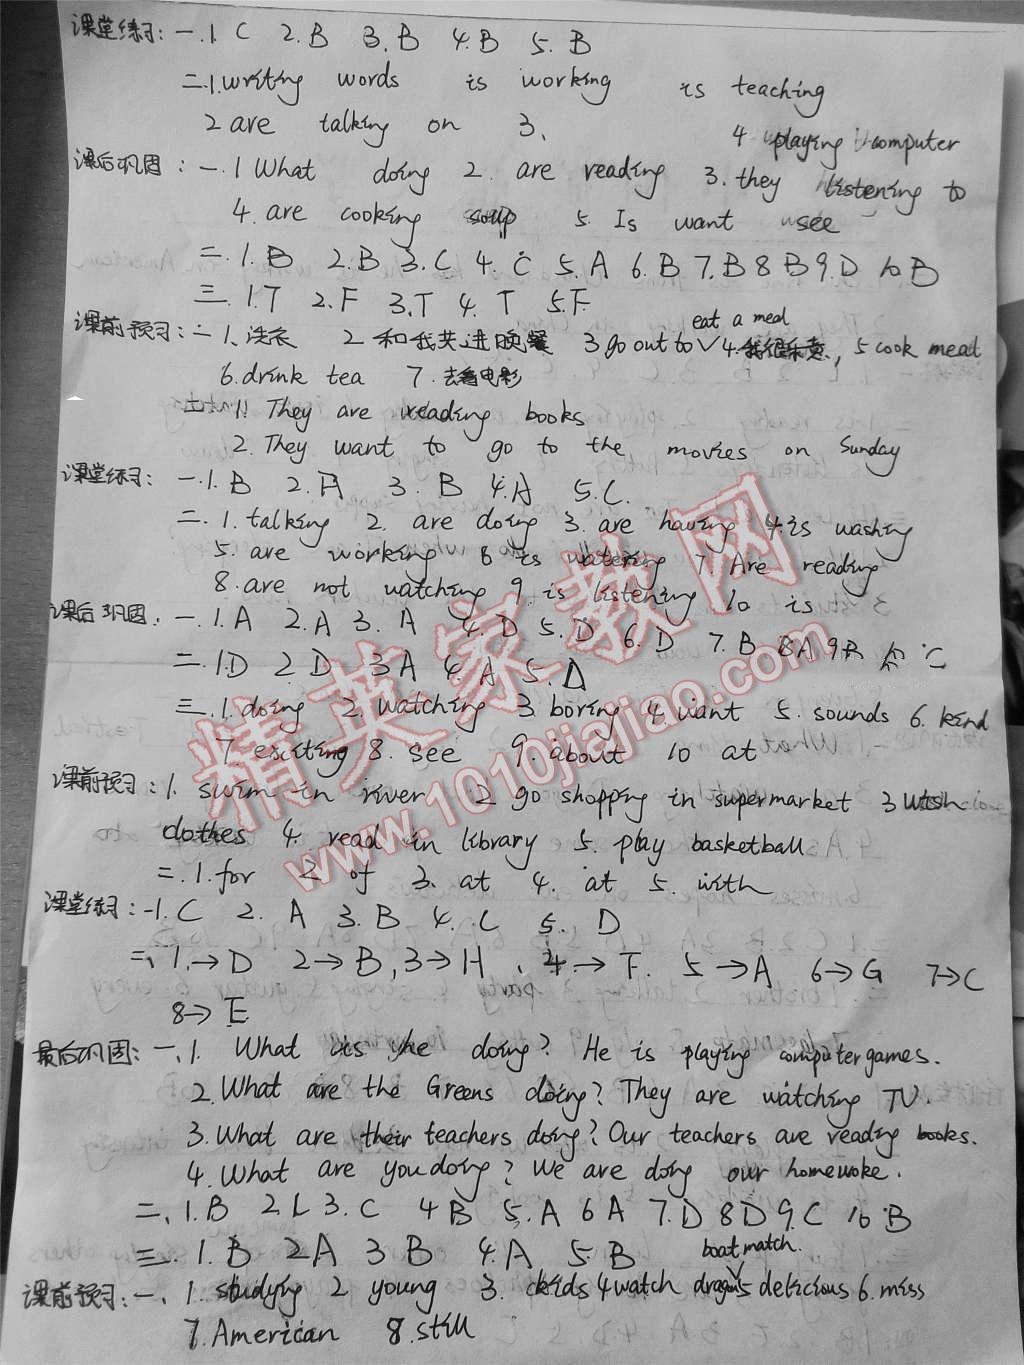 课堂练习: 一.1 C 2.B 3.B 4.B 5.B
二.1.writing words is working is teaching
2 are talking on 3. 4 playing computer
课后巩固: 一.1 What doing 2. are reading 3. they listening to
4. are cooking soup 5. Is want see
二.1.B 2.B 3.C 4.C 5.A 6.B 7.B 8 B 9.D 10 B
三.1.T 2.F 3.T 4.T 5.F
课前预习: 一1、洗衣 2 和我共进晚餐 3 go out to eat a meal 4.我很乐意, 5 cook meal
6.drink tea 7.去看电影
二1. They are reading books
2. They want to go to the movies on Sunday
课堂练习: 一.1.B 2.A 3.B 4.A 5.C.
二.1.talking 2.are doing 3.are having 4.is washing
5.are working 6 is watering 7.Are reading
8.are not watching 9.is listening 10 is
课后巩固. 一.1.A 2.A 3.A 4.D 5.D 6.D 7.B 8A 9B C
二.1D 2.D 3 A 4.A 5 D
三.1.doing 2.watching 3 boring 4 want 5.sounds 6.kind
7.exciting 8.see 9.about 10 at
课前预习: 1. swim in river 2 go shopping in supermarket 3 wash
clothes 4. read in library 5. play basketball
二.1.for 2 of 3.at 4.at 5.with
课堂练习: 一1.C 2.A 3.B 4.C 5.D
二、1.→D 2→B, 3→H、4.→F. 5→A 6→G 7→C
8→E
最后巩固: 一、1. What is he doing? He is playing computer games.
2. What are the Greens doing? They are watching TV.
3. What are their teachers doing? Our teachers are reading books.
4. What are you doing? We are doing our homewoke.
二、1.B 2 C 3.C 4B 5.A 6A 7.D 8D 9.C 10 B
三.1.B 2A 3B 4.A 5B
课前预习: 一、1.studying 2 young 3. kids 4 watch dragon boat match. 5 delicious 6.miss
7.American 8.still
精英家教网
www.1010jiajiao.com